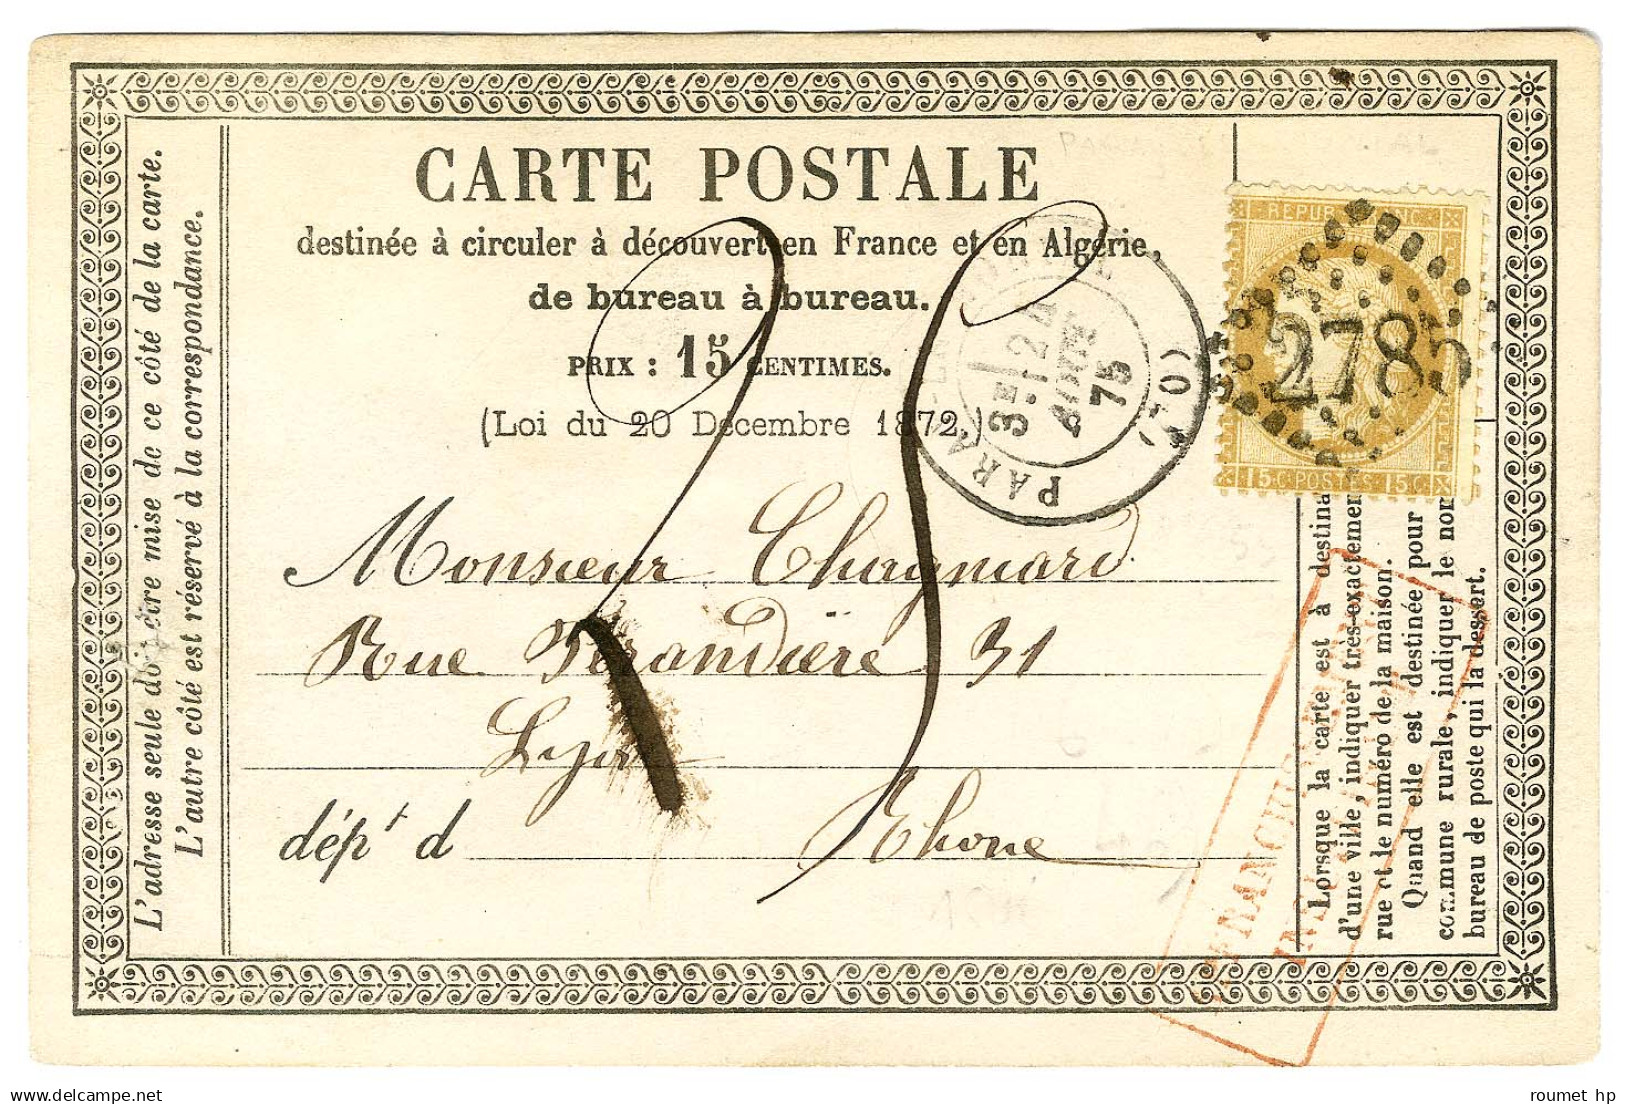 CARTE POSTALE
destinée à circuler à découvert en France et en Algérie,
de bureau à bureau.
PRIX : 15 CENTIMES.
(Loi du 20 Décembre 1872.)
Monsieur Chagniard
Rue Pérandière 31
Lyon
dép.t d Rhone
L'adresse seule doit être mise de ce côté de la carte.
L'autre côté est réservé à la correspondance.
PARA
3E
24
75
(70)
RÉPUB FRANC
15 C. POSTES 15 C.
2785
Lorsque la carte est à destina
d'une ville, indiquer très-exactement
rue et le numéro de la maison.
Quand elle est destinée pour
commune rurale, indiquer le nom
bureau de poste qui la dessert.
AFFRANCHISSEMENT
INSUFFISANT
roumet hp